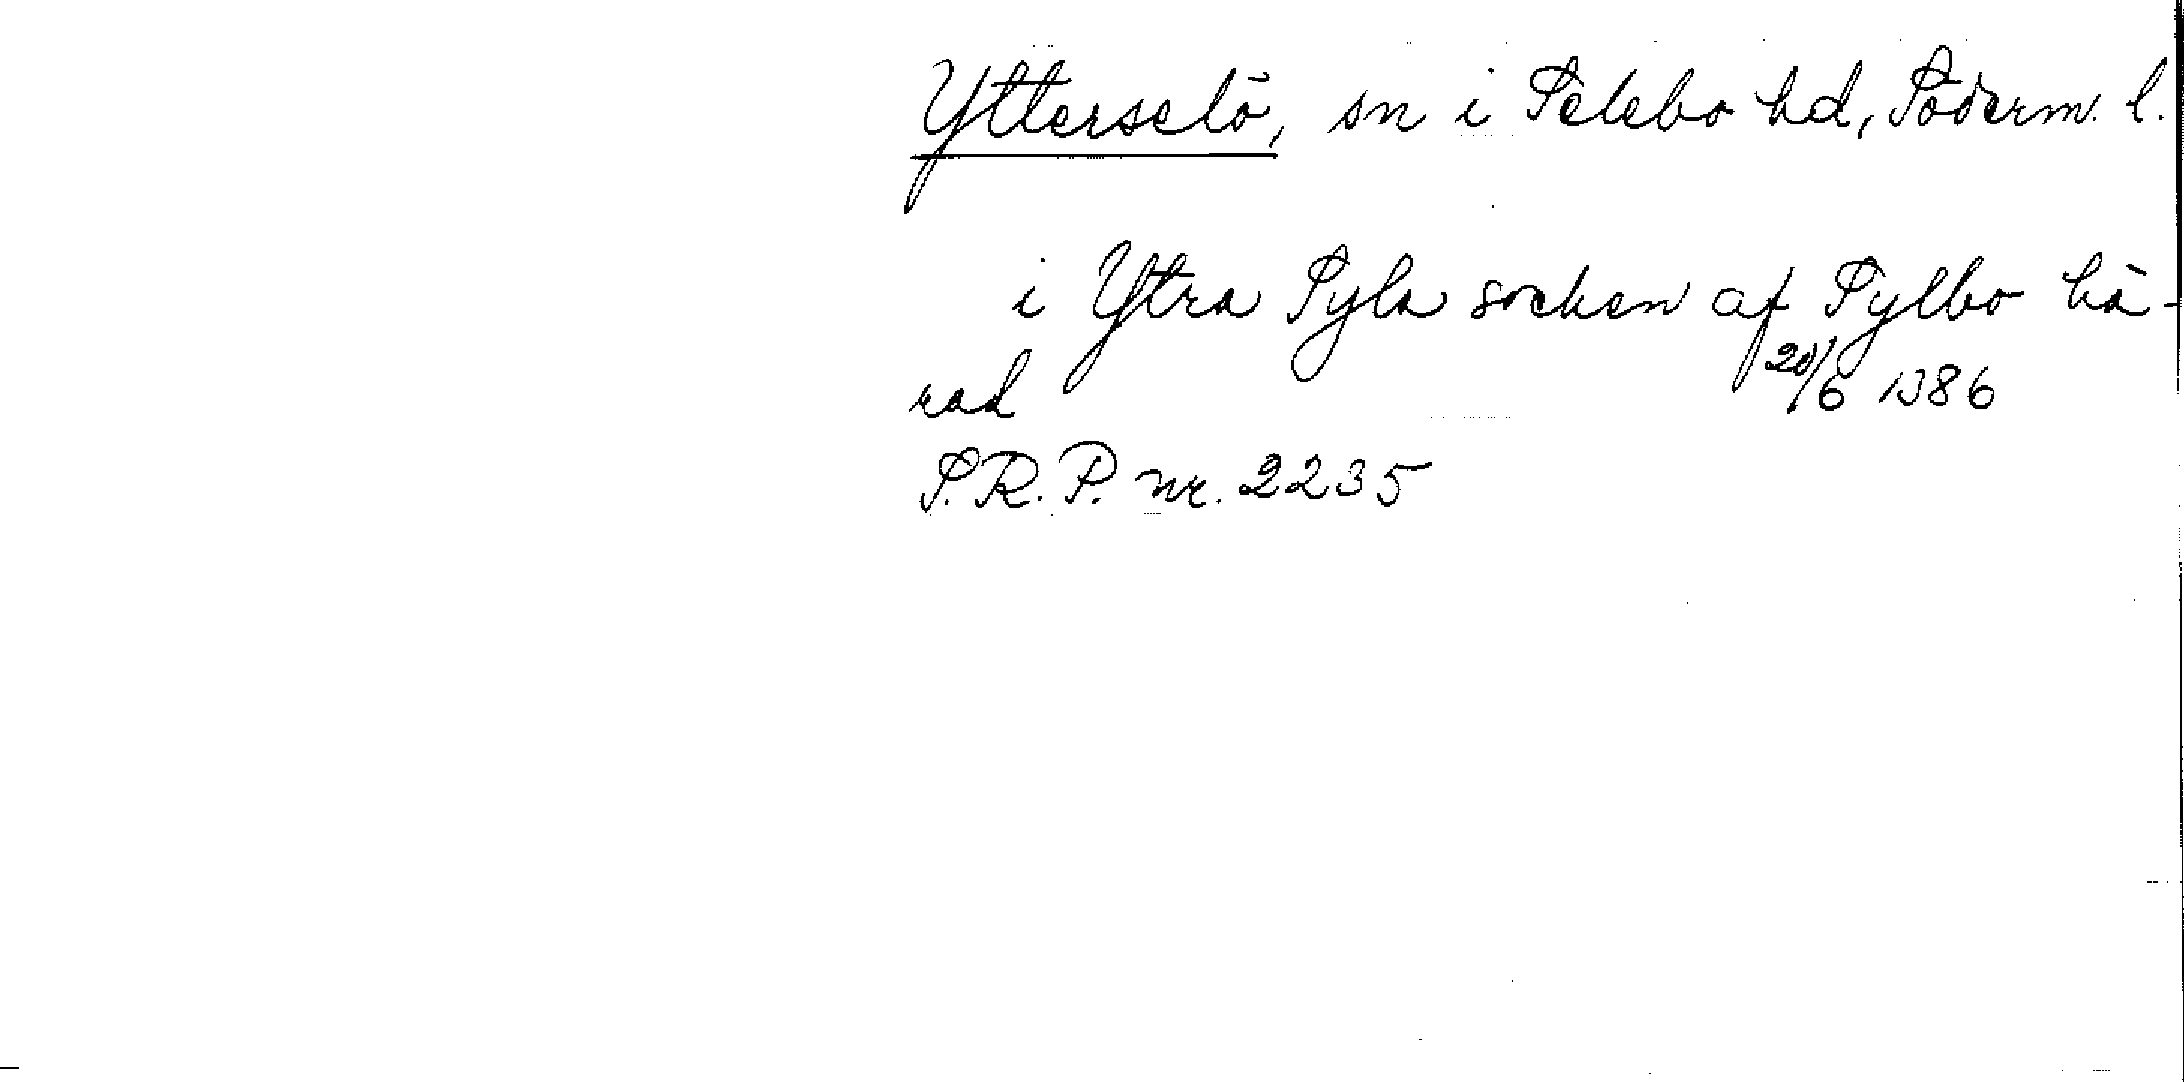 Ytterselö, sn i Selebo hd, Söderm. l.
i Ytra Sylø socken af Sylbo hä-
rad 20/6 1386
S.R.P. nr. 2235